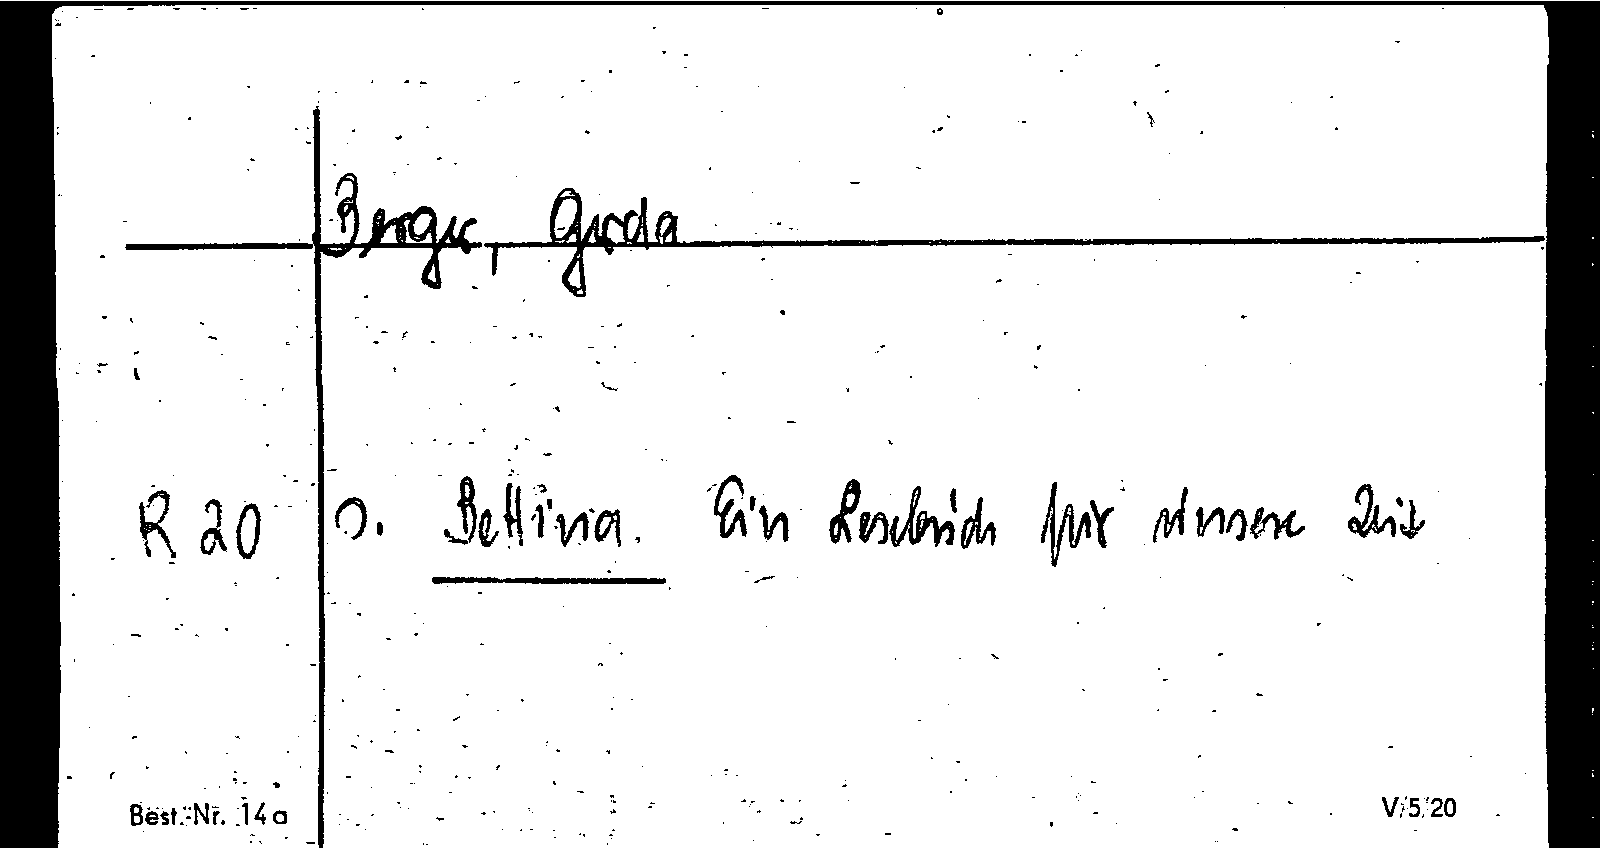 Berger, Gerda
R 20 s. Bettina. Ein Lesebuch für unsere Zeit
Best.-Nr. 14a V/5/20